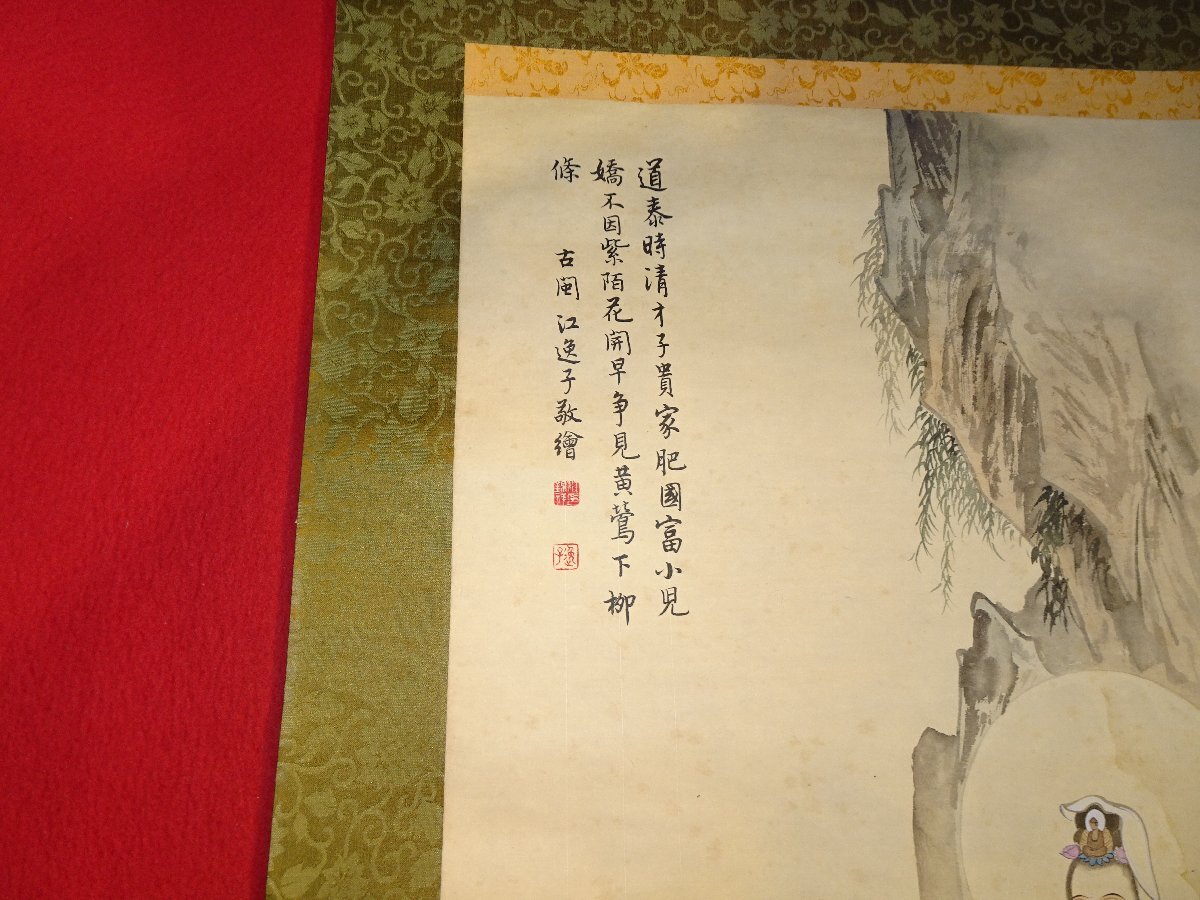 道泰時清才子貴家肥國富小兒
嬌不因紫陌花開早爭見黃鶯下柳
條 古閩江逸子敬繪
逸子